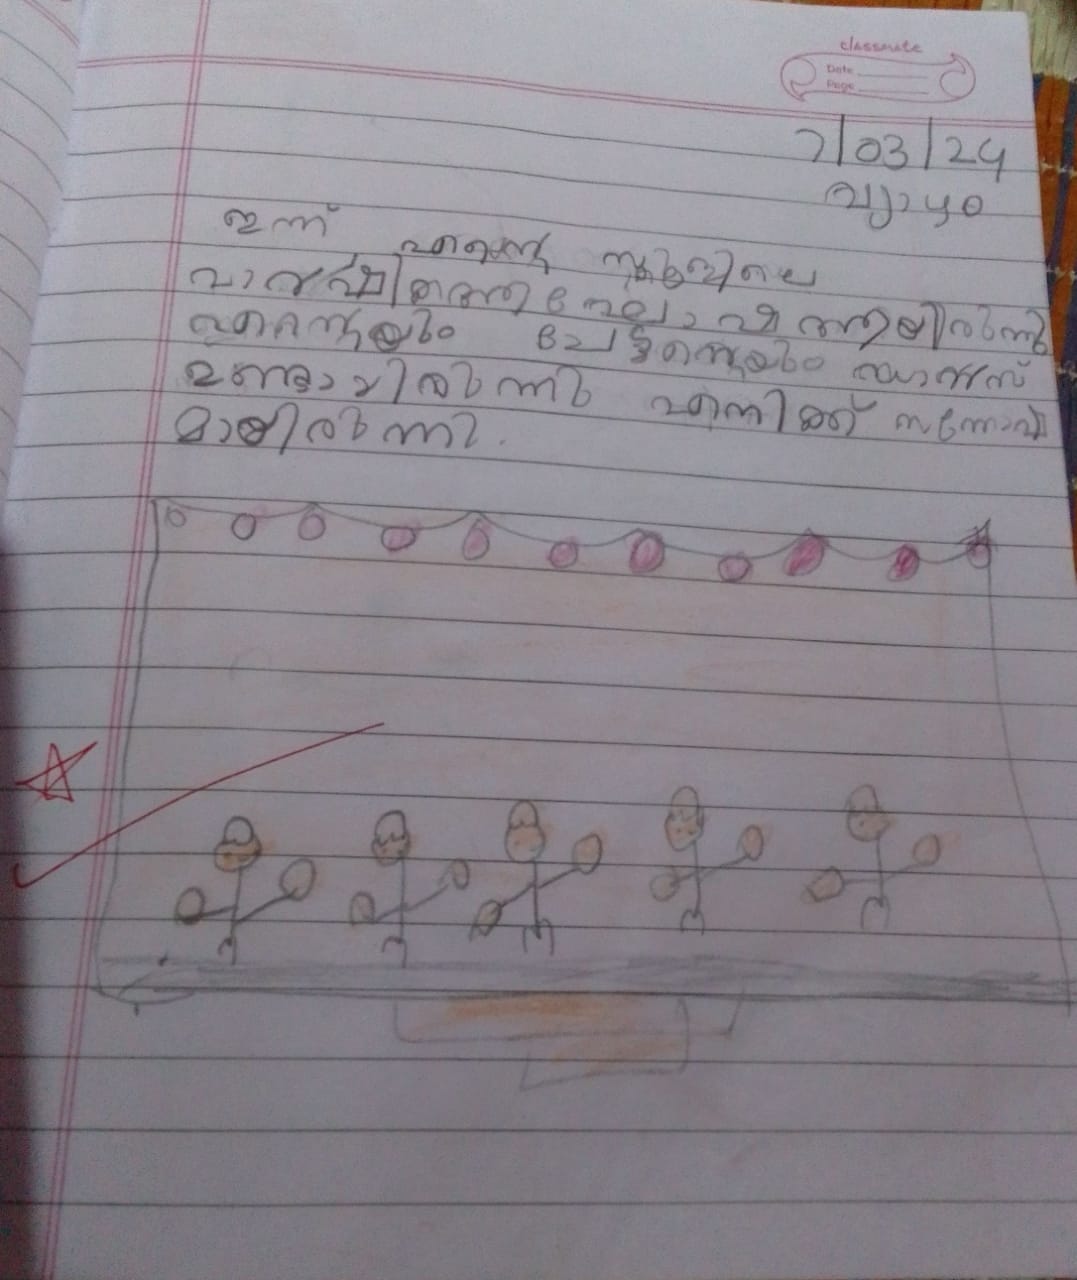 classmate
Date
Page
7/03/24
വ്യാഴം
ഇന്ന് എന്റെ സ്കൂളിലെ
വാർഷികത്തി
എന്റെയും ചേച്ചിന്റെയും ഡാൻസ്
ഉണ്ടായിരുന്നു എനിക്ക് സന്തോഷ
മായിരുന്നു.